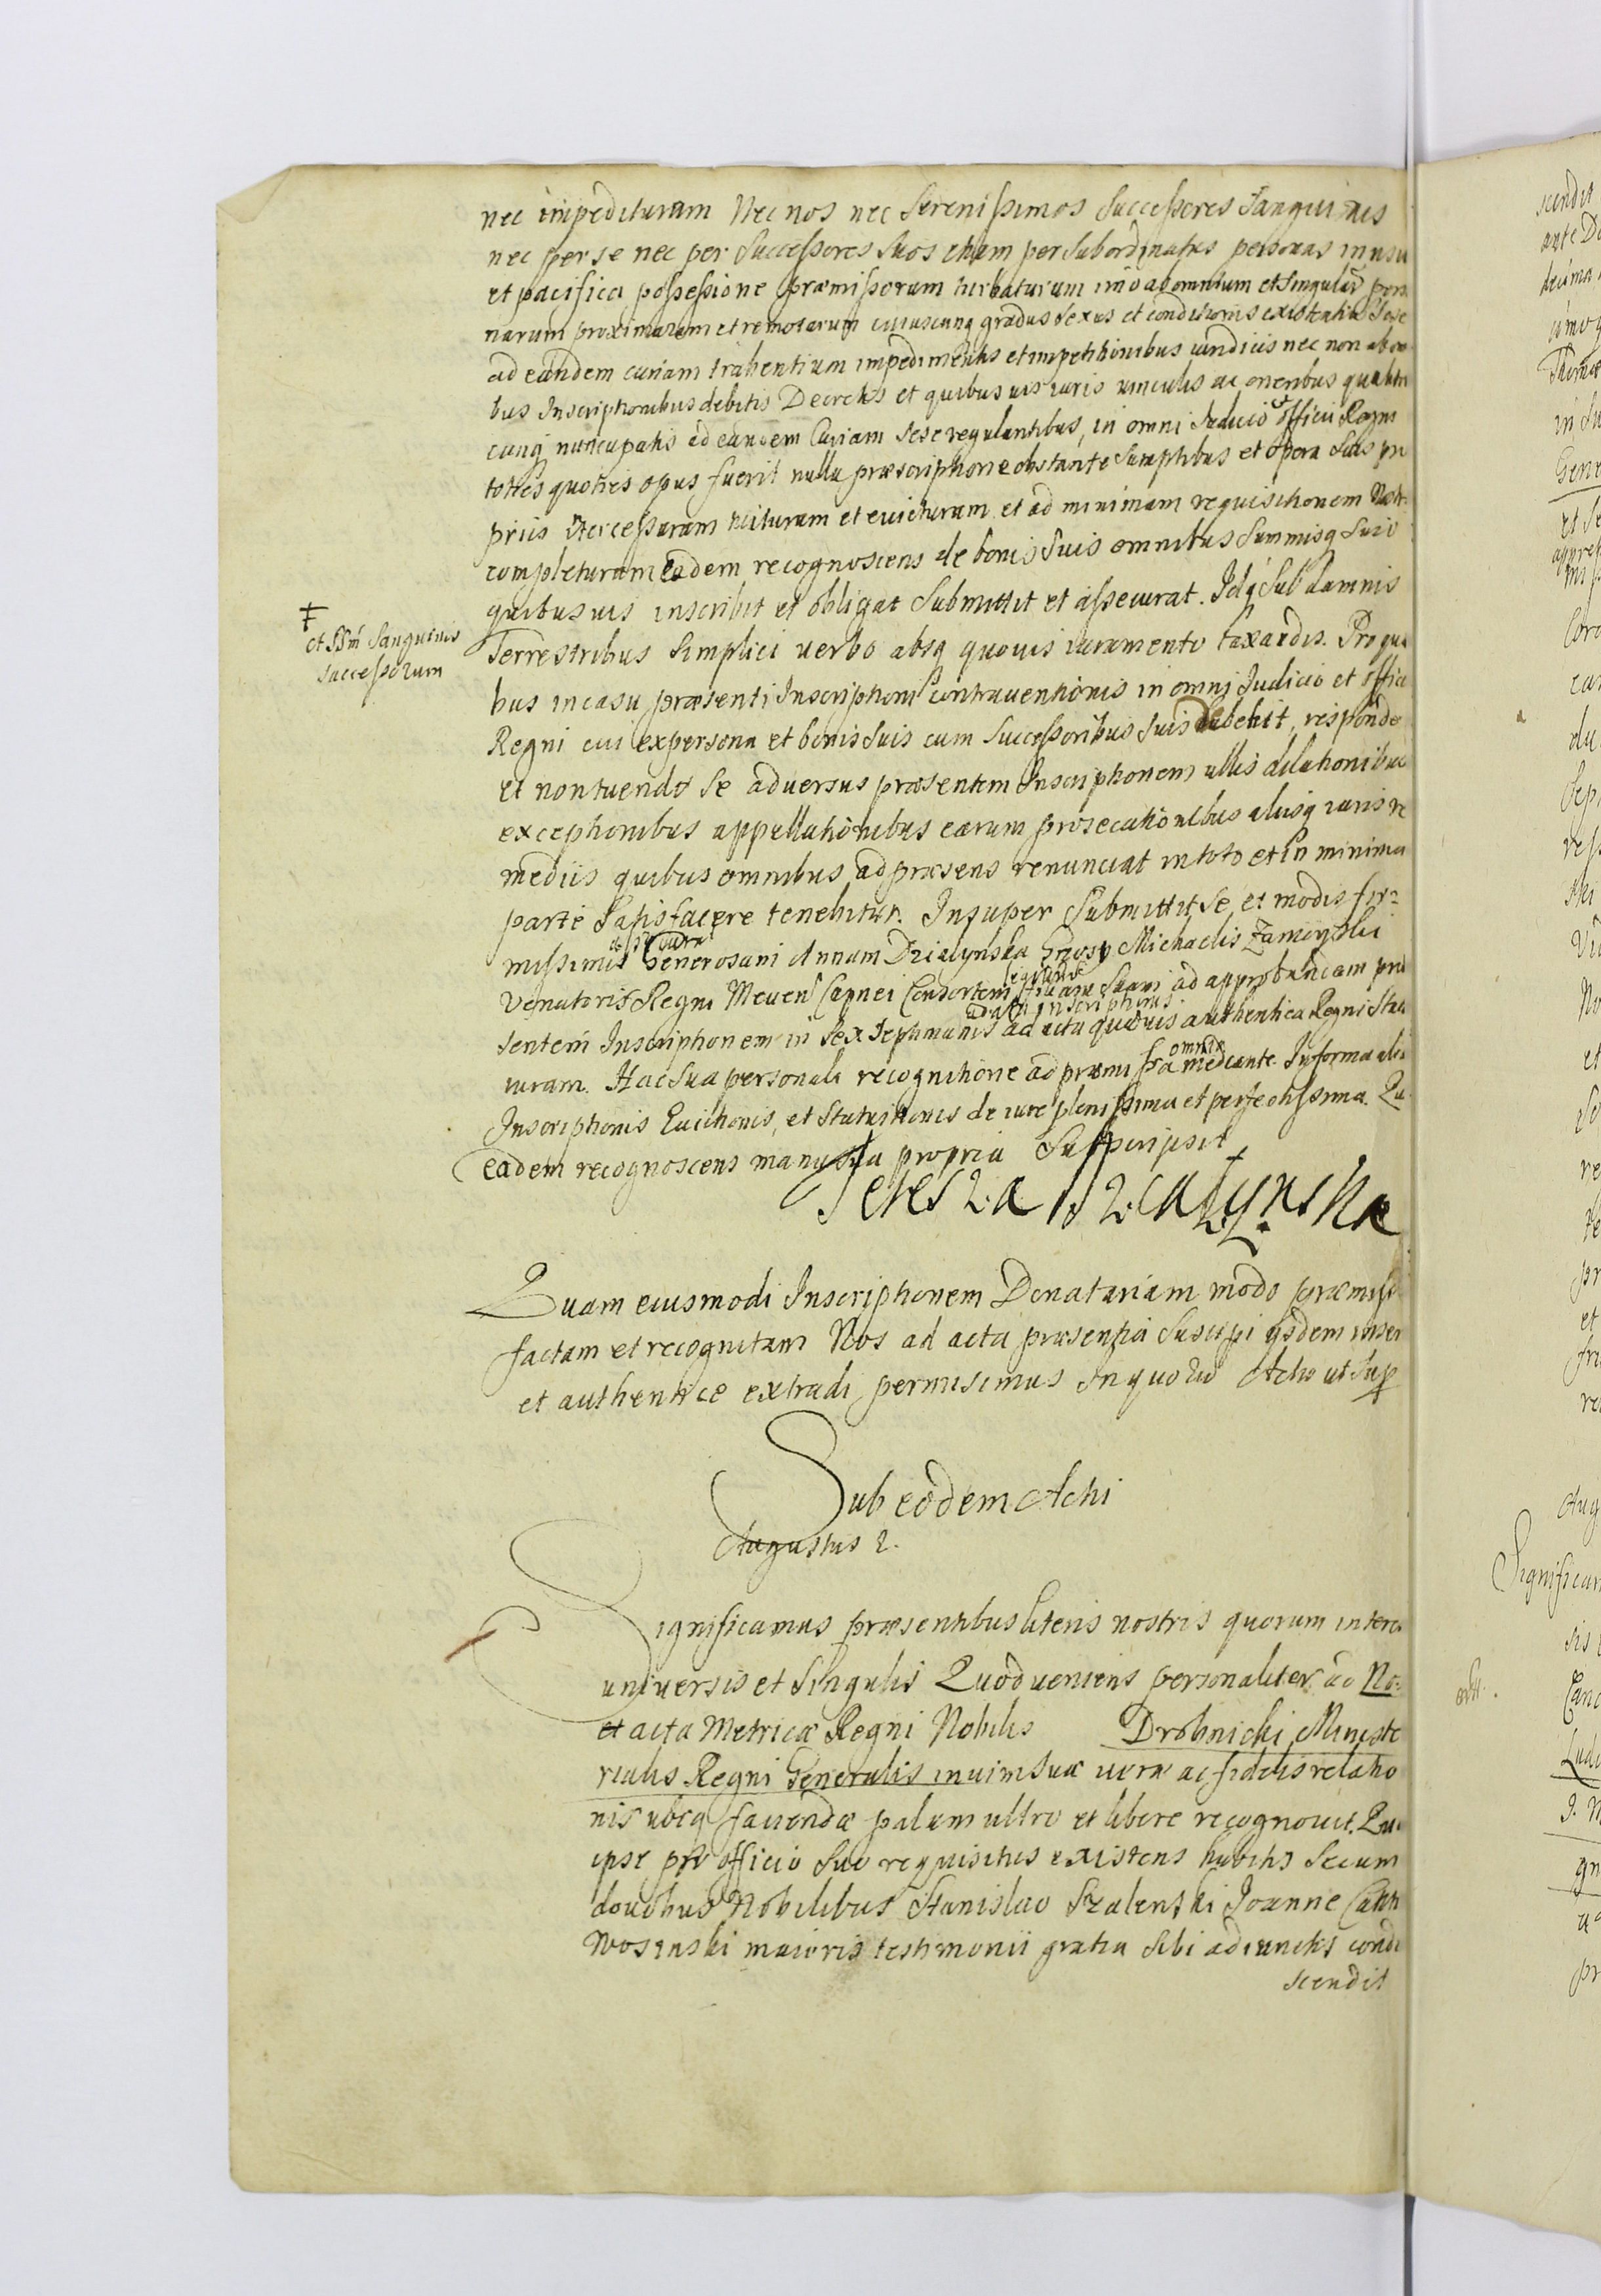 nec impedituram Nec nos nec Serenissimos Successores Sanguinis
nec per se nec per Successores suos etiam per subordinatas personas in usu
et pacifica possessione præmissorum turbaturam imo ab omnium et singular perso
narum proximarum et remotarum cuiuscunq gradus sexus et conditionis existentium sese
ad eandem curiam trahentium impedimentis et impetitionibus iuridicis nec non ab om
bus Inscriptionibus debitis Decretis et quibusuis iuris vinculis ac oneribus qualiter
cunq nuncupatis ad eandem Curiam sese regulantibus, in omni Iudicio et officii Regni
toties quoties opus fuerit nulla præscriptione obstante sumptibus et opera suis pro
priis Itercessuram tuituram et euicturam et ad minimam requisitionem Nostr
‡
et SSm̃ Sanguinis
successorum
completuram Eadem recognoscens de bonis suis omnibus summisq suis
quibusuis inscribit et obligat submittit et assecurat. Idq sub damnis
Terrestribus simplici uerbo absq quouis iuramento taxandis. Pro qui
bus in casu præsenti Inscriptioni contrauentionis in omni Iudicio et officio
Regni cui ex persona et bonis suis cum Successoribus suis debebit, responde
et non tuendo se aduersus præsentem Inscriptionem ullis dilationibus
exceptionibus appellationibus earum prosecutionibus aliisq iuris re
mediis quibus omnibus ad præsens renunciat in toto et in minima
parte satisfacere tenebitur. Insuper submittit se et modis fir
missimis Generosam Annam Dzialynska Gnosi Michaelis Zamoyski
Venatoris Regni Meuen Capnei Consortem filiam suam ad approbandam præ
sentem Inscriptionem in sex septimanis ad acta quæuis authentica Regni statu
ituram. Hac sua personali recognitione ad præmissa omnia mediante. In forma alia
Inscriptionis Euictionis, et Statuitionis de iure plenissima et perfectissima. Qu
eadem recognoscens manu sua propria subscripsit
Teresza Dzialynska
Quam eiusmodi Inscriptionem Donatariam modo præmisso
factam et recognitam Nos ad acta præsentia suscipi ijsdem inseri
et authentice extradi permisimus In quorũ Actu ut sup
Sub eodem Acti
Augustus 2.
Significamus præsentibus literis nostris quorum interes
universis et singulis Quod ueniens personaliter ad No
et acta Metricæ Regni Nobilis Drobnicki Ministe
rialis Regni Generalis in uim suæ ueræ ac fidelis relatio
nis ubiq faciendæ palam ultro et libere recognouit. Qu
ipse pro officio suo requisitus existens habitis secum
duobus Nobilibus Stanislao Szalenski Joanne Canti
Wosinski maioris testimonii gratia sibi adiunctis conde
scendit